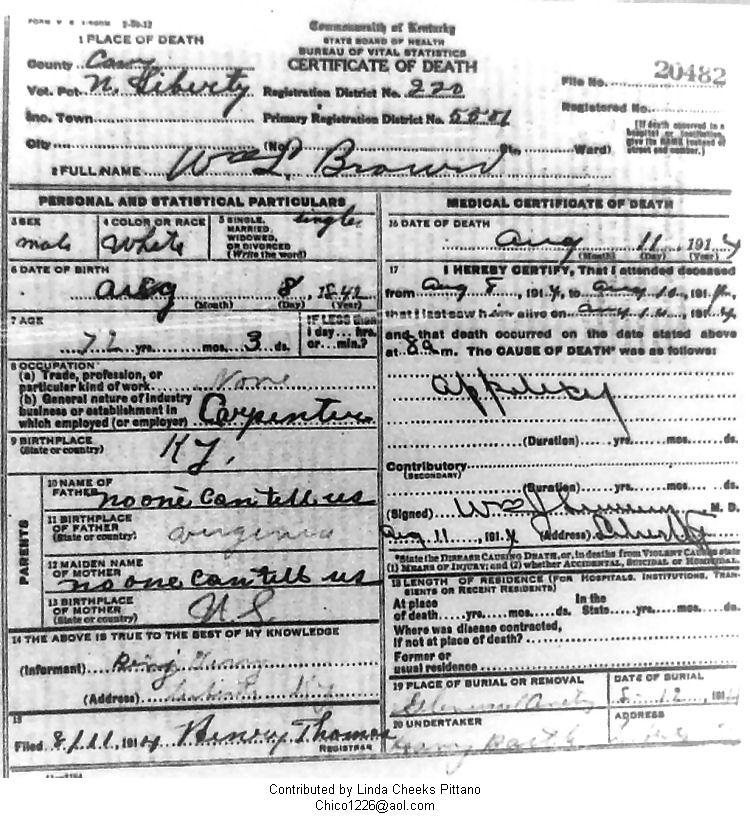 Commonwealth of Kentucky
STATE BOARD OF HEALTH
BUREAU OF VITAL STATISTICS
CERTIFICATE OF DEATH
1 PLACE OF DEATH
County Casey
Vot. Pct. N. Liberty Registration District No. 220
File No. 20482
Inc. Town Primary Registration District No. 5501
Registered No.
City (No. St. Ward)
[If death occurred in a hospital or institution, give its NAME instead of street and number.]
2 FULL NAME Wm L. Brown
PERSONAL AND STATISTICAL PARTICULARS
3 SEX male
4 COLOR OR RACE White
5 SINGLE, MARRIED, WIDOWED, OR DIVORCED (Write the word) single
6 DATE OF BIRTH
aug 8, 1842
(Month) (Day) (Year)
7 AGE
72 yrs. mos. 3 ds.
IF LESS than 1 day...hrs. or...min.?
8 OCCUPATION
(a) Trade, profession, or particular kind of work None
(b) General nature of industry business or establishment in which employed (or employer) Carpenter
9 BIRTHPLACE (State or country) Ky.
PARENTS
10 NAME OF FATHER no one can tell us
11 BIRTHPLACE OF FATHER (State or country) virginia
12 MAIDEN NAME OF MOTHER no one can tell us
13 BIRTHPLACE OF MOTHER (State or country) U.S.
14 THE ABOVE IS TRUE TO THE BEST OF MY KNOWLEDGE
(Informant)
(Address)
15
Filed 8/11, 1914 Henry Thomas
REGISTRAR
MEDICAL CERTIFICATE OF DEATH
16 DATE OF DEATH
aug 11, 1914
(Month) (Day) (Year)
17 I HEREBY CERTIFY, That I attended deceased
from Aug 8, 1914, to aug 10, 1914,
that I last saw him alive on aug 10, 191
and that death occurred on the date stated above
at 8 a m. The CAUSE OF DEATH* was as follows:
(Duration) yrs. mos. ds.
Contributory
(SECONDARY)
(Duration) yrs. mos. ds.
(Signed) M. D.
Aug 11, 1914 (Address)
*State the DISEASE CAUSING DEATH, or, in deaths from VIOLENT CAUSES state
(1) MEANS OF INJURY; and (2) whether ACCIDENTAL, SUICIDAL or HOMICIDAL.
18 LENGTH OF RESIDENCE (FOR HOSPITALS, INSTITUTIONS, TRANSIENTS OR RECENT RESIDENTS)
At place of death yrs. mos. ds. In the State yrs. mos. ds.
Where was disease contracted, if not at place of death?
Former or usual residence
19 PLACE OF BURIAL OR REMOVAL
DATE OF BURIAL
8 12, 1914
20 UNDERTAKER
ADDRESS
Contributed by Linda Cheeks Pittano
Chico1226@aol.com